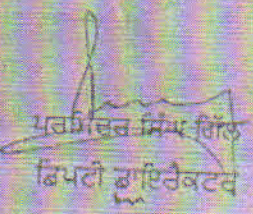 ਪਰਮਿੰਦਰ ਸਿੰਘ ਗਿੱਲ
ਡਿਪਟੀ ਡਾਇਰੈਕਟਰ